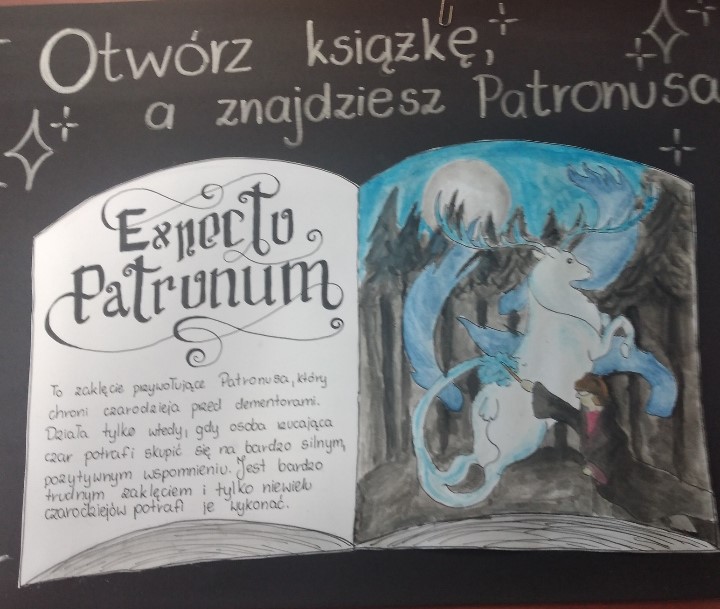 Otwórz książkę,
a znajdziesz Patronusa
Expecto
Patronum
To zaklęcie przywołujące Patronusa, który
chroni czarodzieja przed dementorami.
Działa tylko wtedy, gdy osoba rzucająca
czar potrafi skupić się na bardzo silnym,
pozytywnym wspomnieniu. Jest bardzo
trudnym zaklęciem i tylko niewielu
czarodziejów potrafi je wykonać.